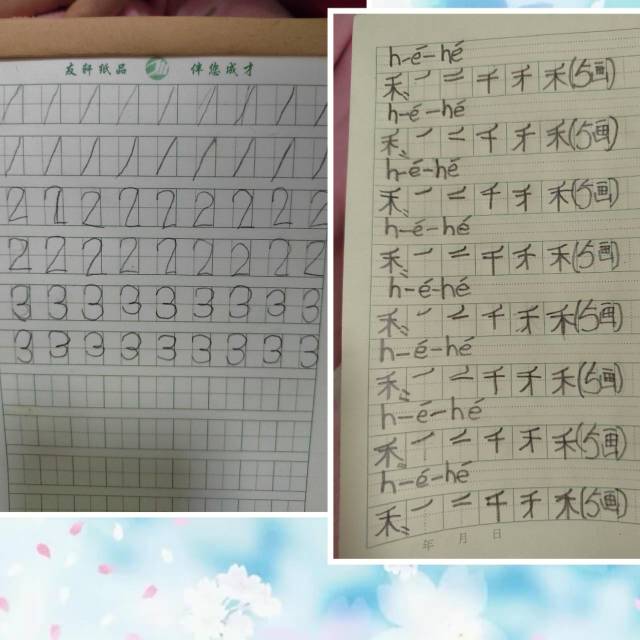 友轩纸品 伴您成才
1 1 1 1 1 1 1 1 1
1 1 1 1 1 1 1 1 1
2 2 2 2 2 2 2 2 2
2 2 2 2 2 2 2 2 2
3 3 3 3 3 3 3 3 3
3 3 3 3 3 3 3 3 3
h-é-hé
禾、㇒ 二 千 才 禾(5画)
h-é-hé
禾、㇒ 二 千 才 禾(5画)
h-é-hé
禾、㇒ 二 千 才 禾(5画)
h-é-hé
禾、㇒ 二 千 才 禾(5画)
h-é-hé
禾、㇒ 二 千 才 禾(5画)
h-é-hé
禾、㇒ 二 千 才 禾(5画)
h-é-hé
禾、㇒ 二 千 才 禾(5画)
h-é-hé
禾、㇒ 二 千 才 禾(5画)
年 月 日